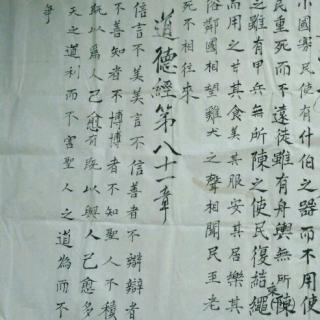 小國寡民使有什伯之器而不用使
民重死而不遠徙雖有舟輿無所陳(乘)
之雖有甲兵無所陳之使民復結繩
而用之甘其食美其服安其居樂其
俗鄰國相望雞犬之聲相聞民至老
死不相往來
道德經第八十一章
信言不美美言不信善者不辯辯者
不善知者不博博者不知聖人不積
既以為人己愈有既以與人己愈多
天之道利而不害聖人之道為而不
爭